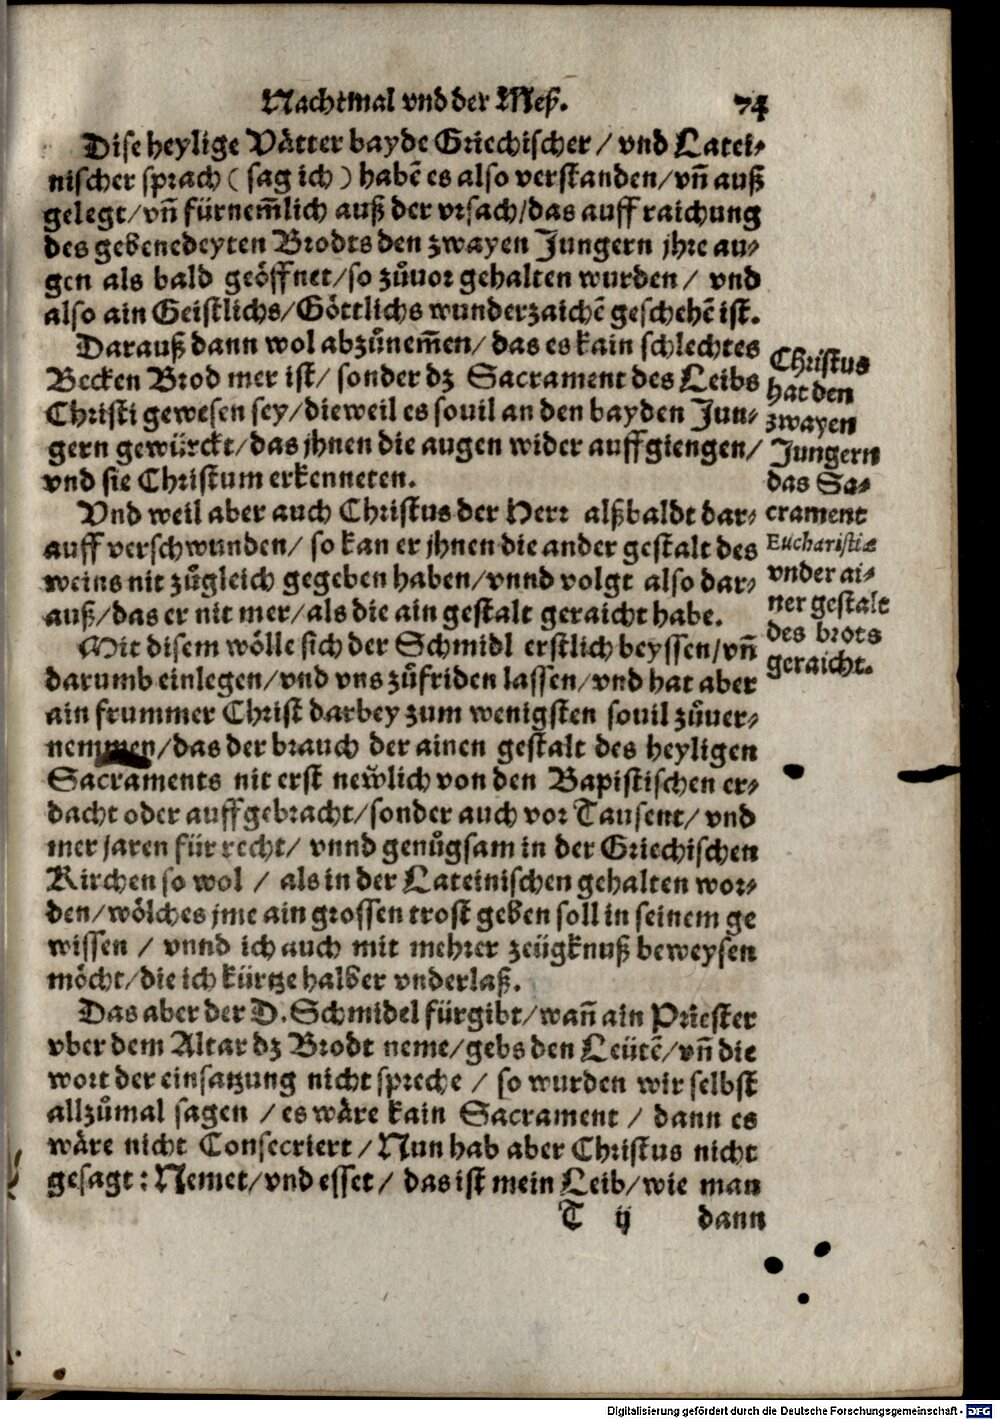 Nachtmal vnd der Meß. 74
Dise heylige Vätter bayde Griechischer / vnd Latei-
nischer sprach ( sag ich ) habẽ es also verstanden / vñ auß
gelegt / vñ fürnem̃lich auß der vrsach / das auff raichung
des gebenedeyten Brodts den zwayen Jungern jhre au-
gen als bald geöffnet / so zůuor gehalten wurden / vnd
also ain Geistlichs / Göttlichs wunderzaichẽ geschehẽ ist.
Darauß dann wol abzůnem̃en / das es kain schlechtes
Becken Brod mer ist / sonder dz Sacrament des Leibs
Christi gewesen sey / dieweil es souil an den bayden Jun-
gern gewürckt / das jhnen die augen wider auffgiengen /
vnd sie Christum erkenneten.
Vnd weil aber auch Christus der Herr alßbaldt dar-
auff verschwunden / so kan er jhnen die ander gestalt des
weins nit zůgleich gegeben haben / vnnd volgt also dar-
auß / das er nit mer / als die ain gestalt geraicht habe.
Christus
hat den
zwayen
Jungern
das Sa-
crament
Eucharistiæ
vnder ai-
ner gestalt
des brots
geraicht.
Mit disem wölle sich der Schmidl erstlich beyssen / vñ
darumb einlegen / vnd vns zůfriden lassen / vnd hat aber
ain frummer Christ darbey zum wenigsten souil zůuer-
nemmen / das der brauch der ainen gestalt des heyligen
Sacraments nit erst newlich von den Bapistischen er-
dacht oder auffgebracht / sonder auch vor Tausent / vnd
mer jaren für recht / vnnd genůgsam in der Griechischen
Kirchen so wol / als in der Lateinischen gehalten wor-
den / wölches jme ain grossen trost geben soll in seinem ge
wissen / vnnd ich auch mit mehrer zeügknuß beweysen
möcht / die ich kürtze halber vnderlaß.
Das aber der D. Schmidel fürgibt / wañ ain Priester
vber dem Altar dz Brodt neme / gebs den Leütẽ / vñ die
wort der einsatzung nicht spreche / so wurden wir selbst
allzůmal sagen / es wäre kain Sacrament / dann es
wäre nicht Consecriert / Nun hab aber Christus nicht
gesagt : Nemet / vnd esset / das ist mein Leib / wie man
T ij dann
Digitalisierung gefördert durch die Deutsche Forschungsgemeinschaft - DFG